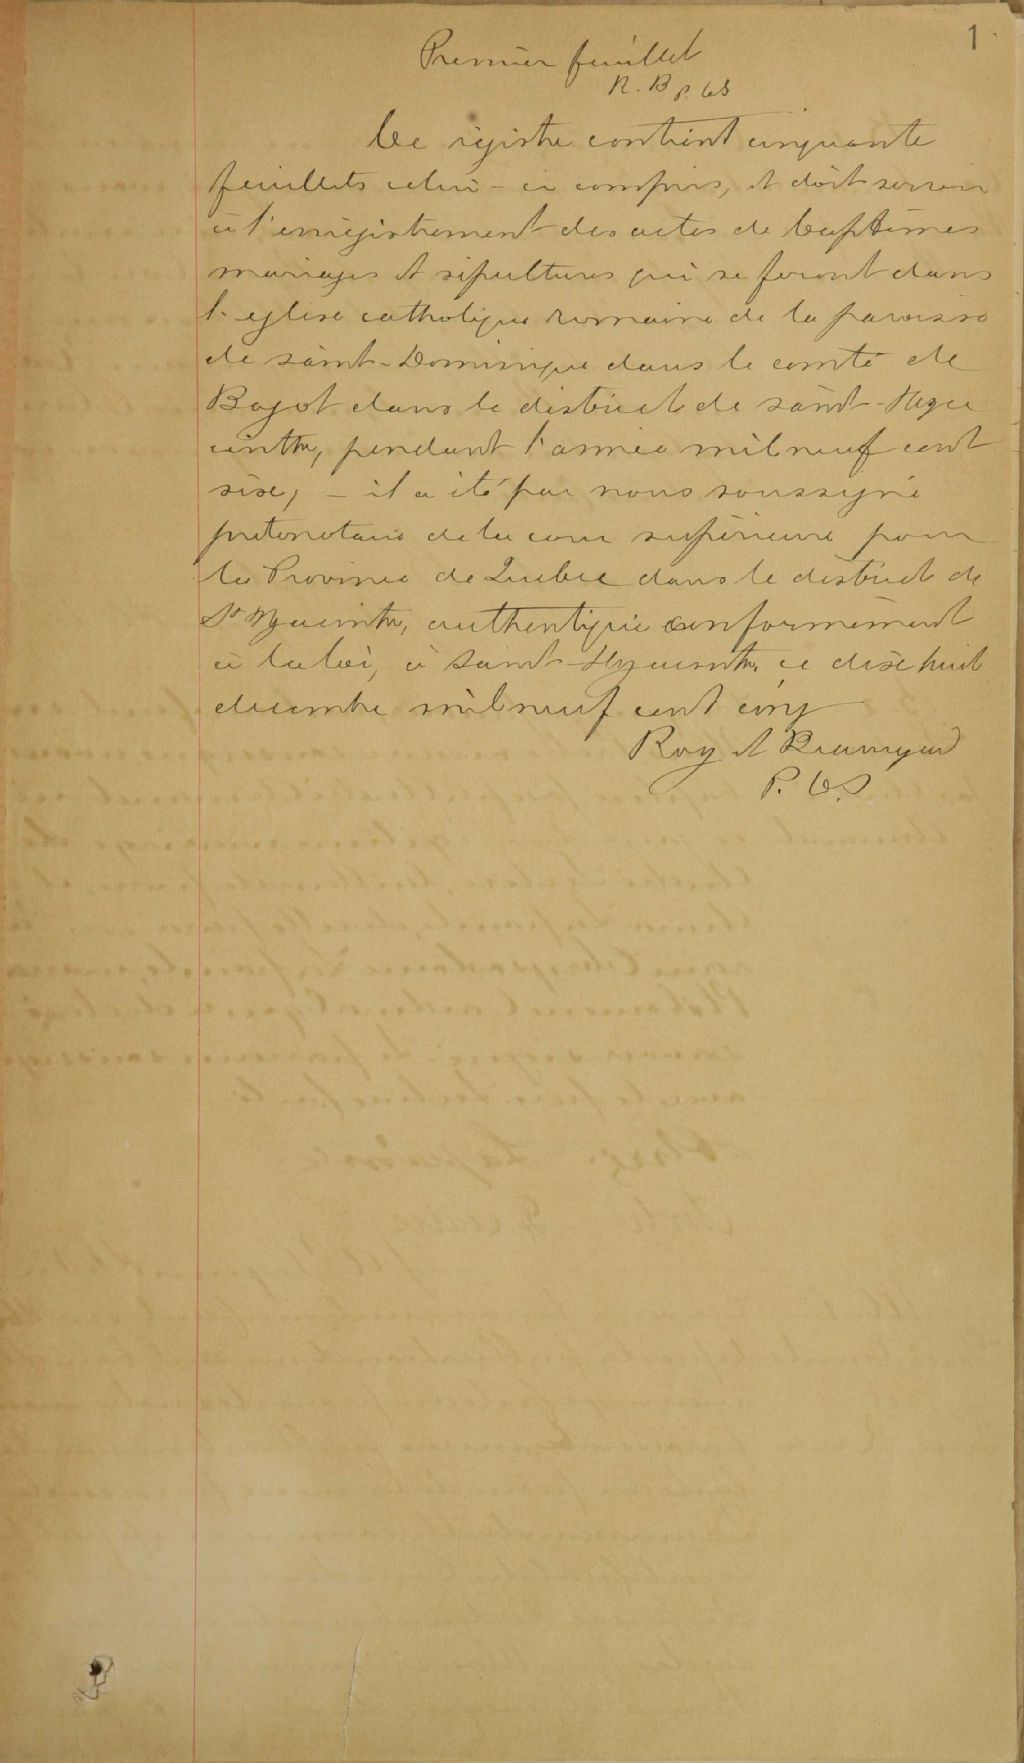 1
Premier feuillet
R. B p. CS
Ce régistre contient cinquante
feuillets celui-ci compris, et doit servir
à l'enrégistrement des actes de baptêmes
mariages et sépultures qui se feront dans
l'eglise catholique romaine de la paroisse
de saint-Dominique dans le comté de
Bagot dans le district de saint-Hya
cinthe, pendant l'année mil neuf cent
six, – il a été par nous soussigné
protonotaire de la cour supérieure pour
la Province de Quebec dans le district de
St Hyacinthe, authentiqué conformément
à la loi, à Saint-Hyacinthe ce dix huit
decembre mil neuf cent cinq
Roy et Beauregard
P. C. S